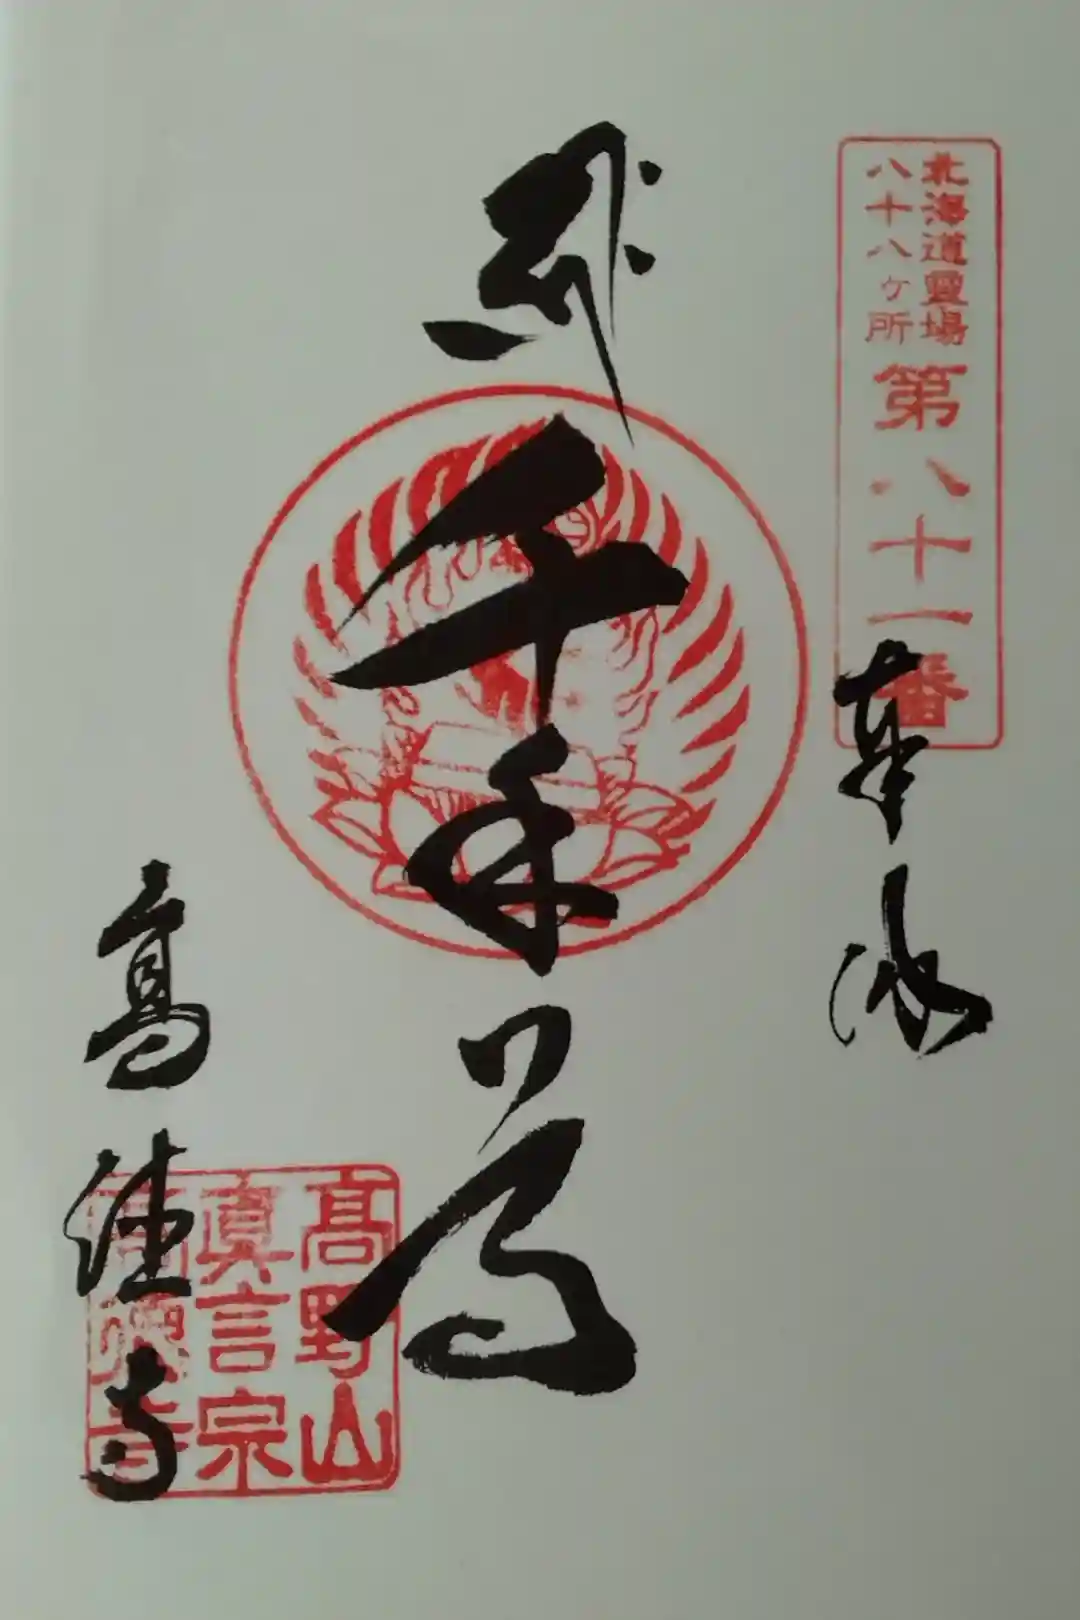 北海道霊場
八十八ヶ所
第八十一番
奉拝
千手尊
髙野山
眞言宗
高徳寺
高徳寺